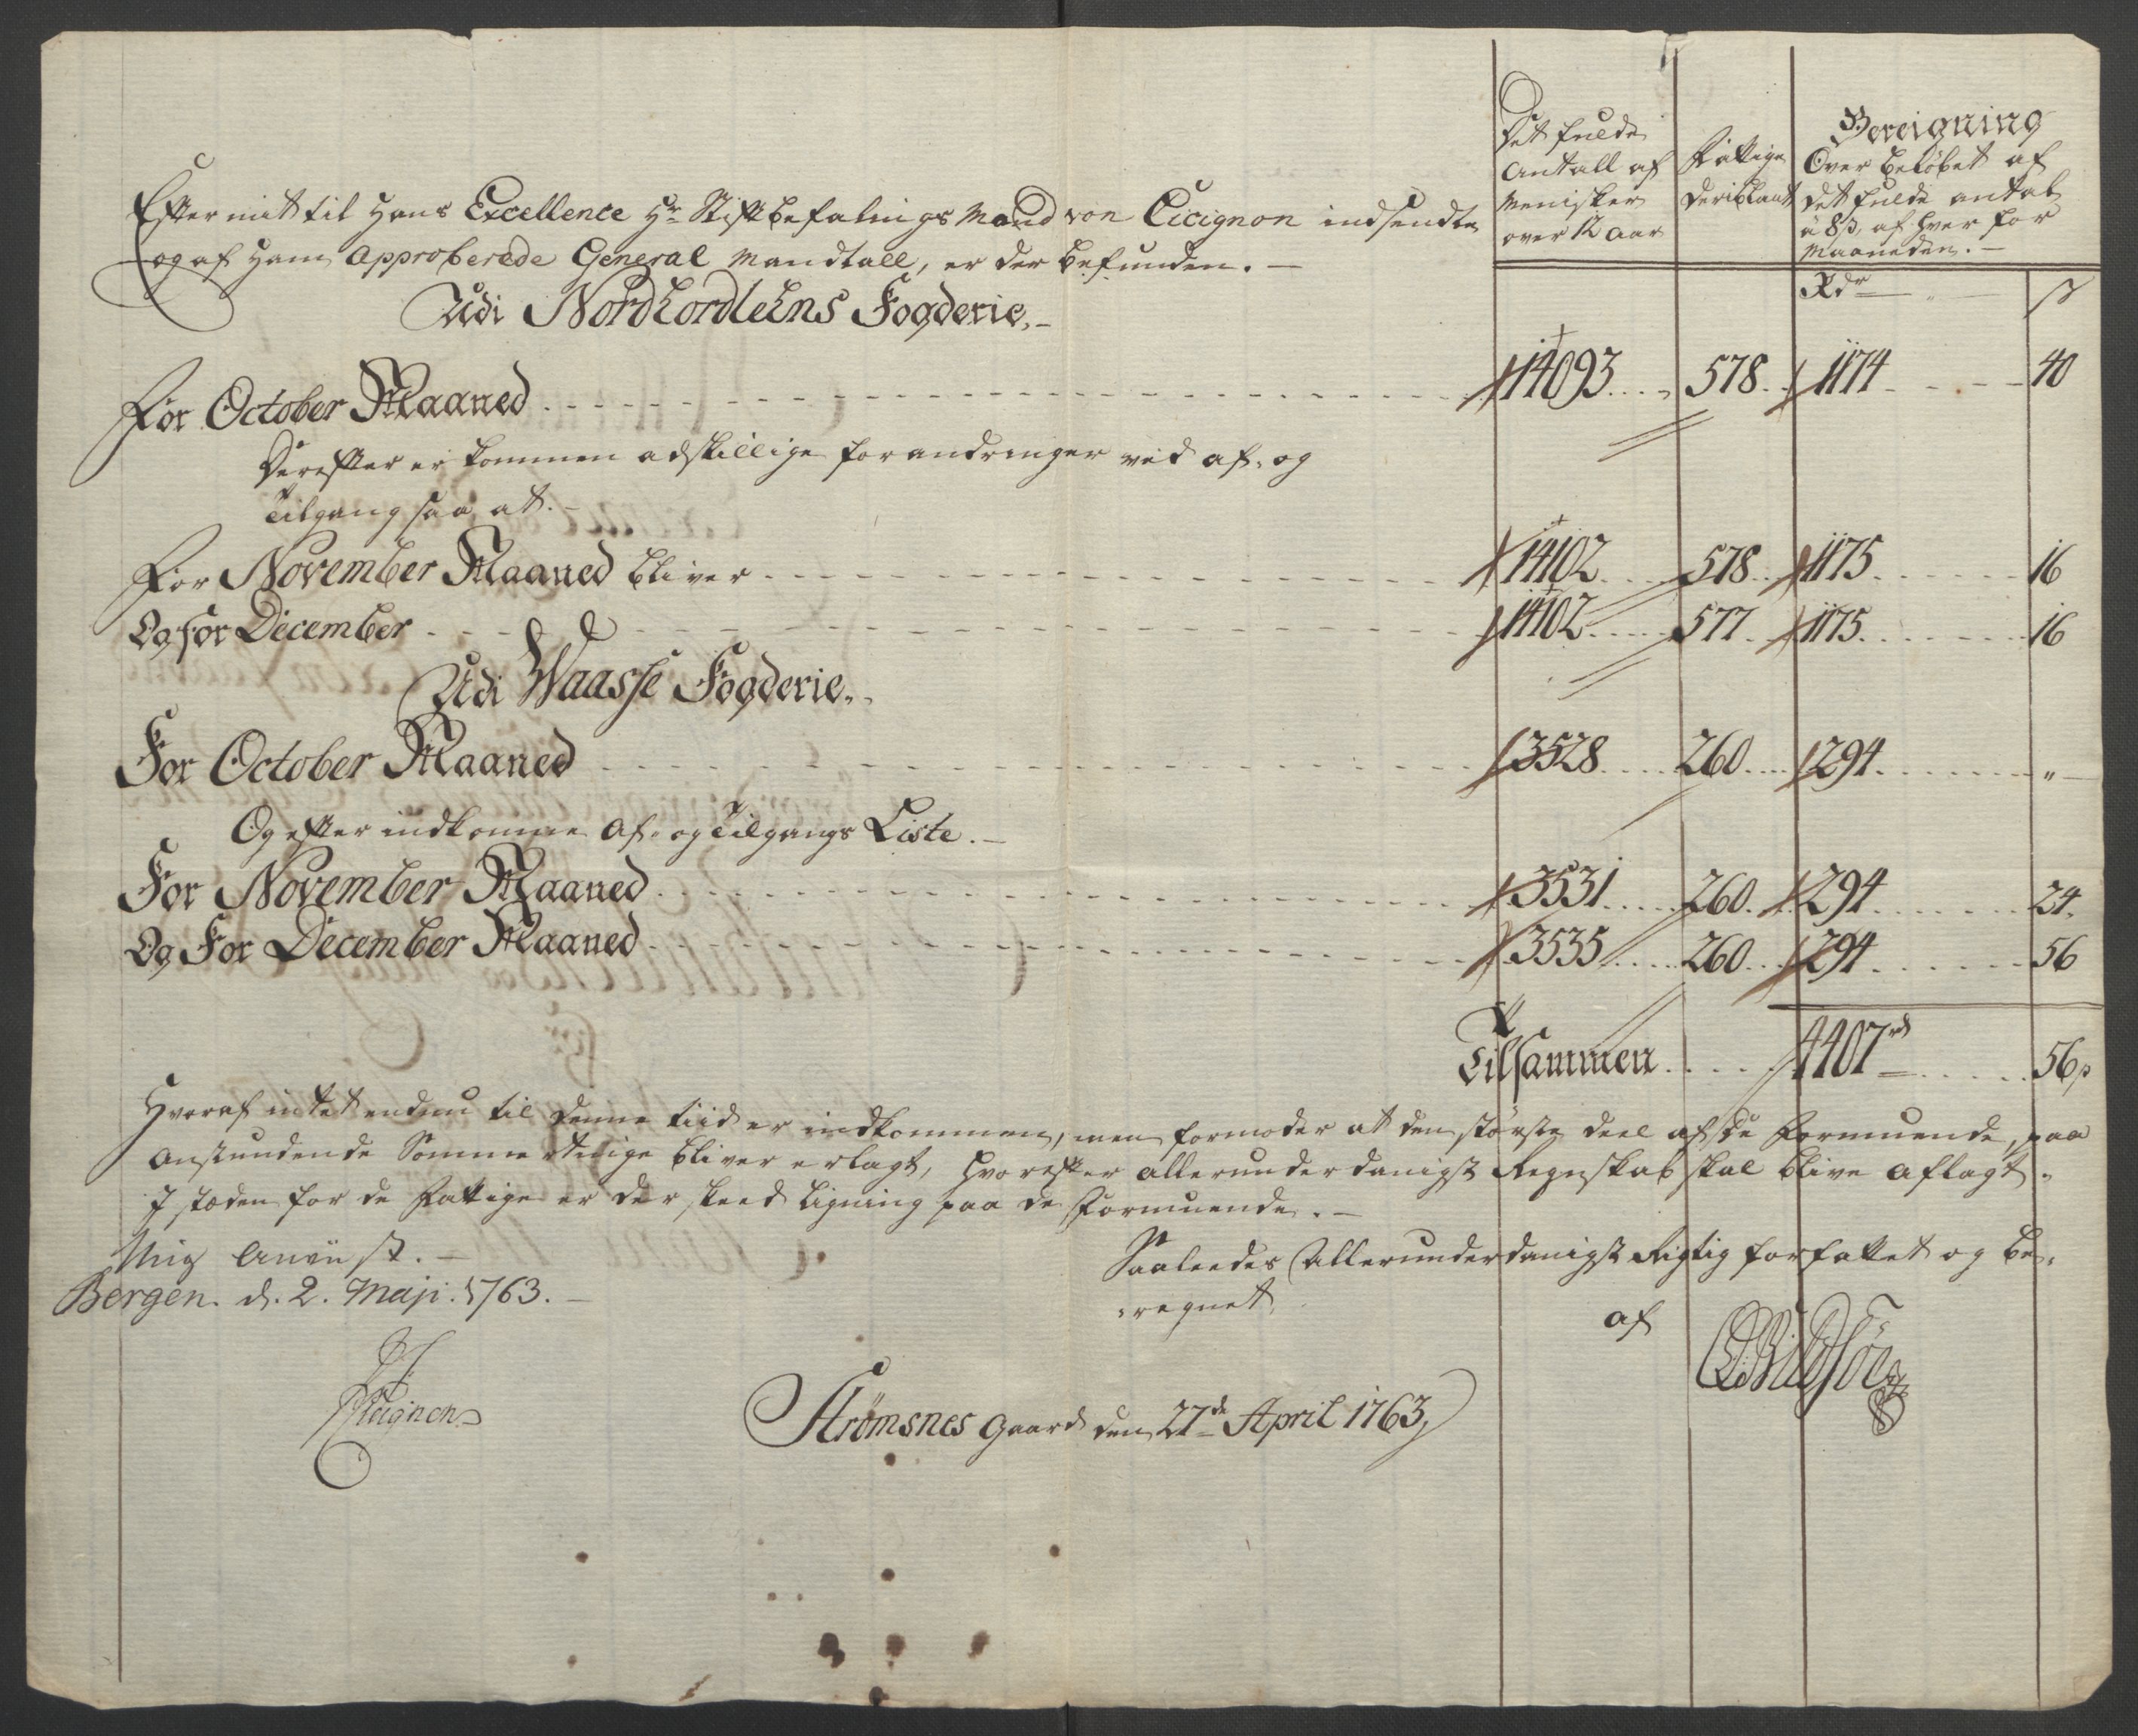 Det fulde
Antall af
Menisker
over 12 Aar
Fattige
deriblant
Bereigning
Over Beløbet af
det fulde antal
à 8 ß, af hver for
Maaneden. —
Efter mit til Hans Excellence Hr Stiftbefalings Mand von Cicignon indsendte
og af Ham Approberede General Mandtall, er der befunden. —
Rdr ß
Udi Nordhordlehns Fogderie. —
For October Maaned 14093 578 1174 40
Derefter er kommen adskillige forandringer ved af- og
Tilgang saa at. —
For November Maaned bliver 14102 578 1175 16
Og for December 14102 577 1175 16
Udi Waasse Fogderie.
For October Maaned 3528 260 294 "
Og efter indkomne Af- og Tilgangs Liste. —
For November Maaned 3531 260 294 24
Og For December Maaned 3535 260 294 56
Tilsammen 4407 rd 56 ß
Hvoraf intet endnu til denne tiid er indkommen, men formoder at den største deel af de Formuende, paa
Anstundende Sommertinge bliver erlagt, hvorefter allerunderdanigst Regnskab skal blive aflagt.
I stæden for de Fattige er der skeed ligning paa de Formuende. —
Mig Anviist. —
Bergen. d. 2. Maji. 1763. —
Saaleedes Allerunderdanigst Rigtig forfattet og be-
regnet,
af
Cicignon
Strømsnes Gaard den 27de April 1763